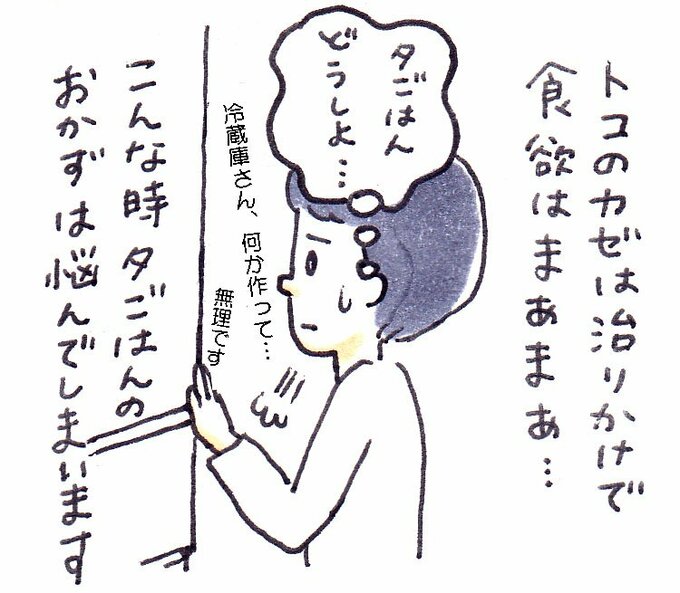 トコのカゼは治りかけで
食欲はまあまあ…
夕ごはん
どうしよ…
冷蔵庫さん、何か作って…
無理です
こんな時夕ごはんの
おかずは悩んでしまいます